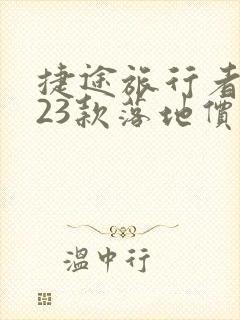 捷途旅行者
23款落地價
溫中行